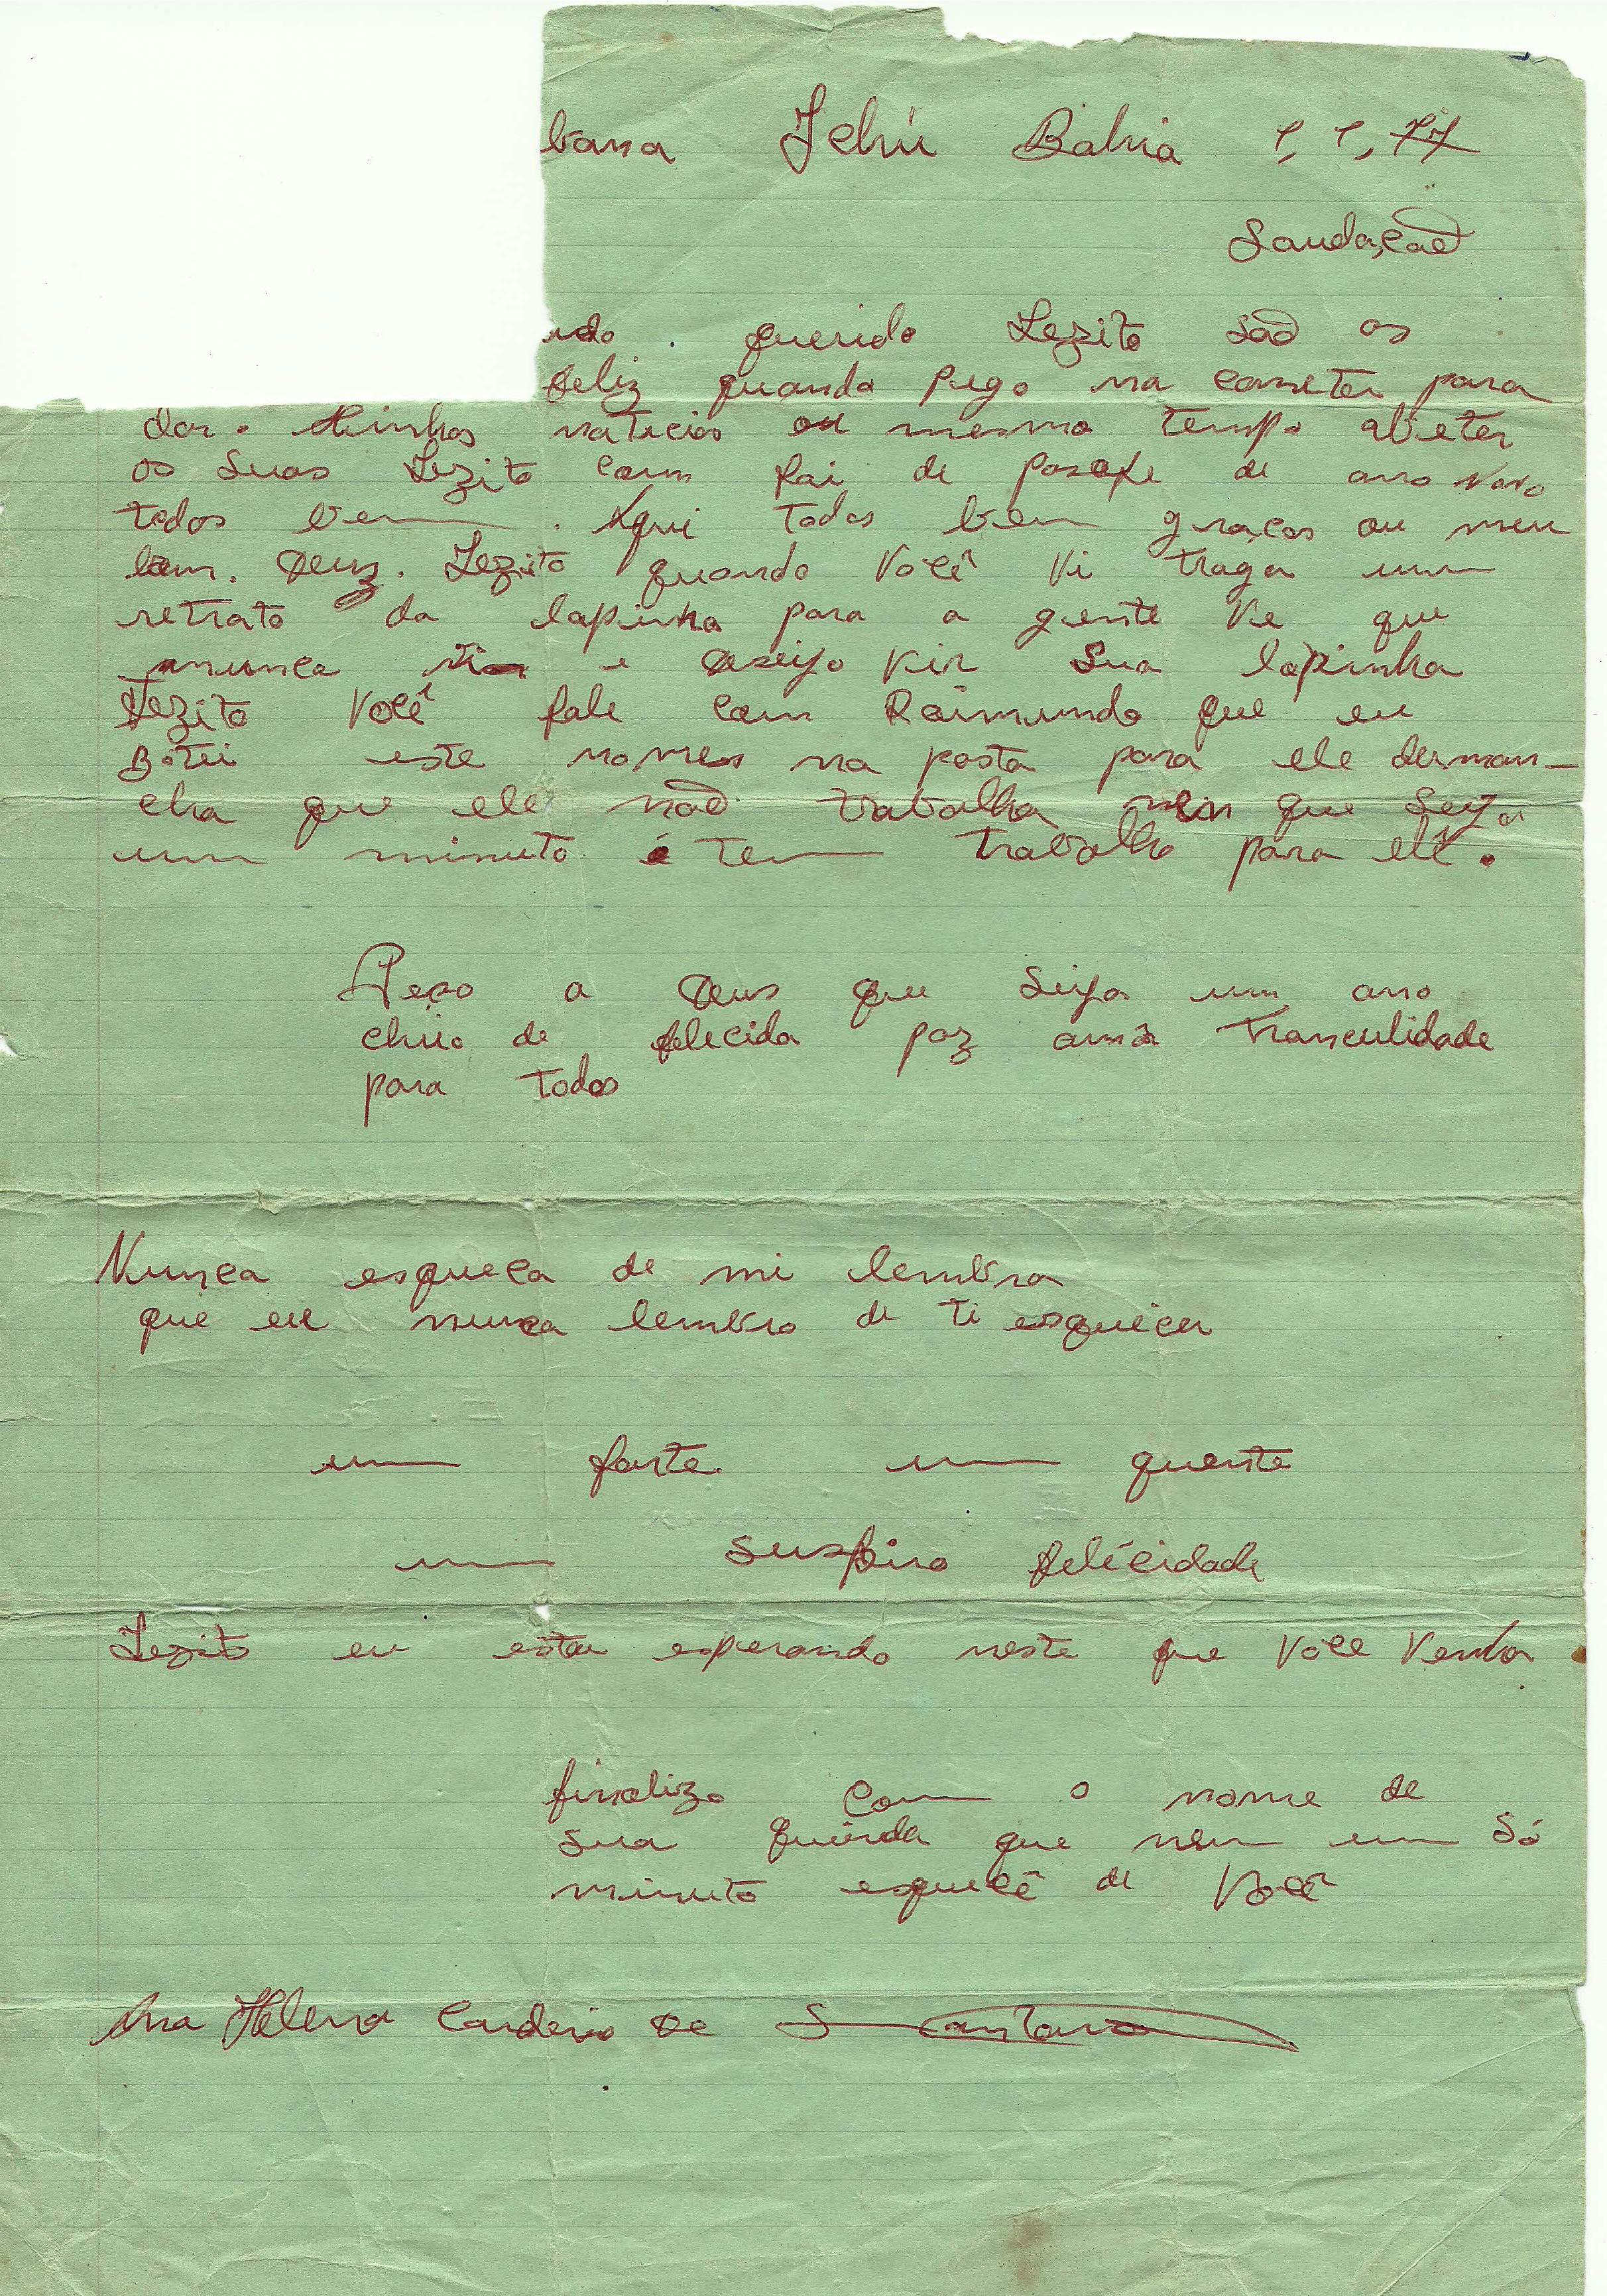 bana Jehú Bahia 1, 1, 77
Saudaçaõ
ndo querido Lezito saõ os
feliz quando pego na caneter para
dar. Minhas naticias ou mesmo tempo abeter
as suas Lezito com fai de pasage de ano novo
todos bem. Aqui todos bem graças ou meu
bom. Deuz. Lezito quando você vi traga um
retrato da lapinha para a gente ve que
nunca e deseijo vir sua lapinha
Lezito você fale com Raimundo que eu
Botei este nomes na posta para ele derman-
cha que ele naõ trabalha nein que seija
um minuto é tem trabalho para elê.
Peço a Deus que seija um ano
cheio de felecida paz amôr tranculidade
para todos
Nunça esqueca de mi lembra
que eu nunca lembro de ti esquecer
um forte um quente
um suspiro felicidade
Lezito eu estou esperando neste que você venha
finalizo com o nome de
sua querida que nem um só
minuto esquecê de você
Ana Helena Cardeiro De Santana